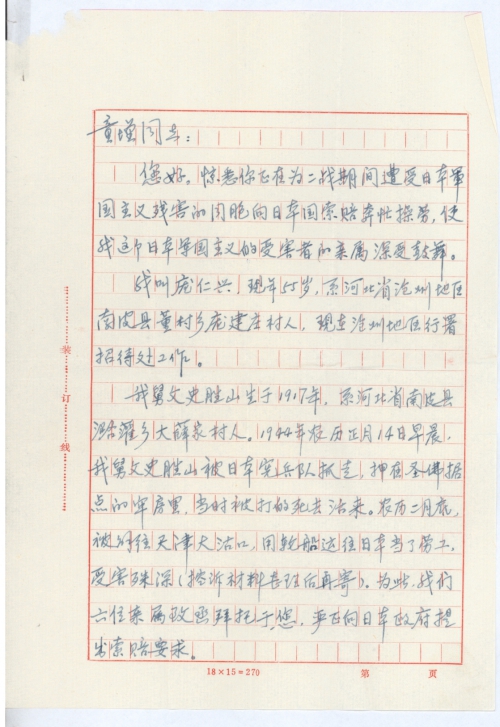 童增同志：
您好。惊悉你正在为二战期间遭受日本军
国主义残害的同胞向日本国索赔奔忙操劳，使
我这个日本军国主义的受害者的亲属深受鼓舞。
我叫庞仁兴，现年55岁，系河北省沧州地区
南皮县董村乡庞建庄村人，现在沧州地区行署
招待处工作。
我舅父史胜山生于1917年，系河北省南皮县
潞灌乡大薛家村人。1944年农历正月14日早晨，
我舅父史胜山被日本宪兵队抓走，押在圣佛据
点的牢房里，当时被打的死去活来。农历二月底，
被绑往天津大沽口，用轮船运往日本当了劳工，
受害殊深（控诉材料整理后再寄）。为此，我们
六位亲属敬恳拜托于您，要向日本政府提
出索赔要求。
装
订
线
18×15=270
第 页